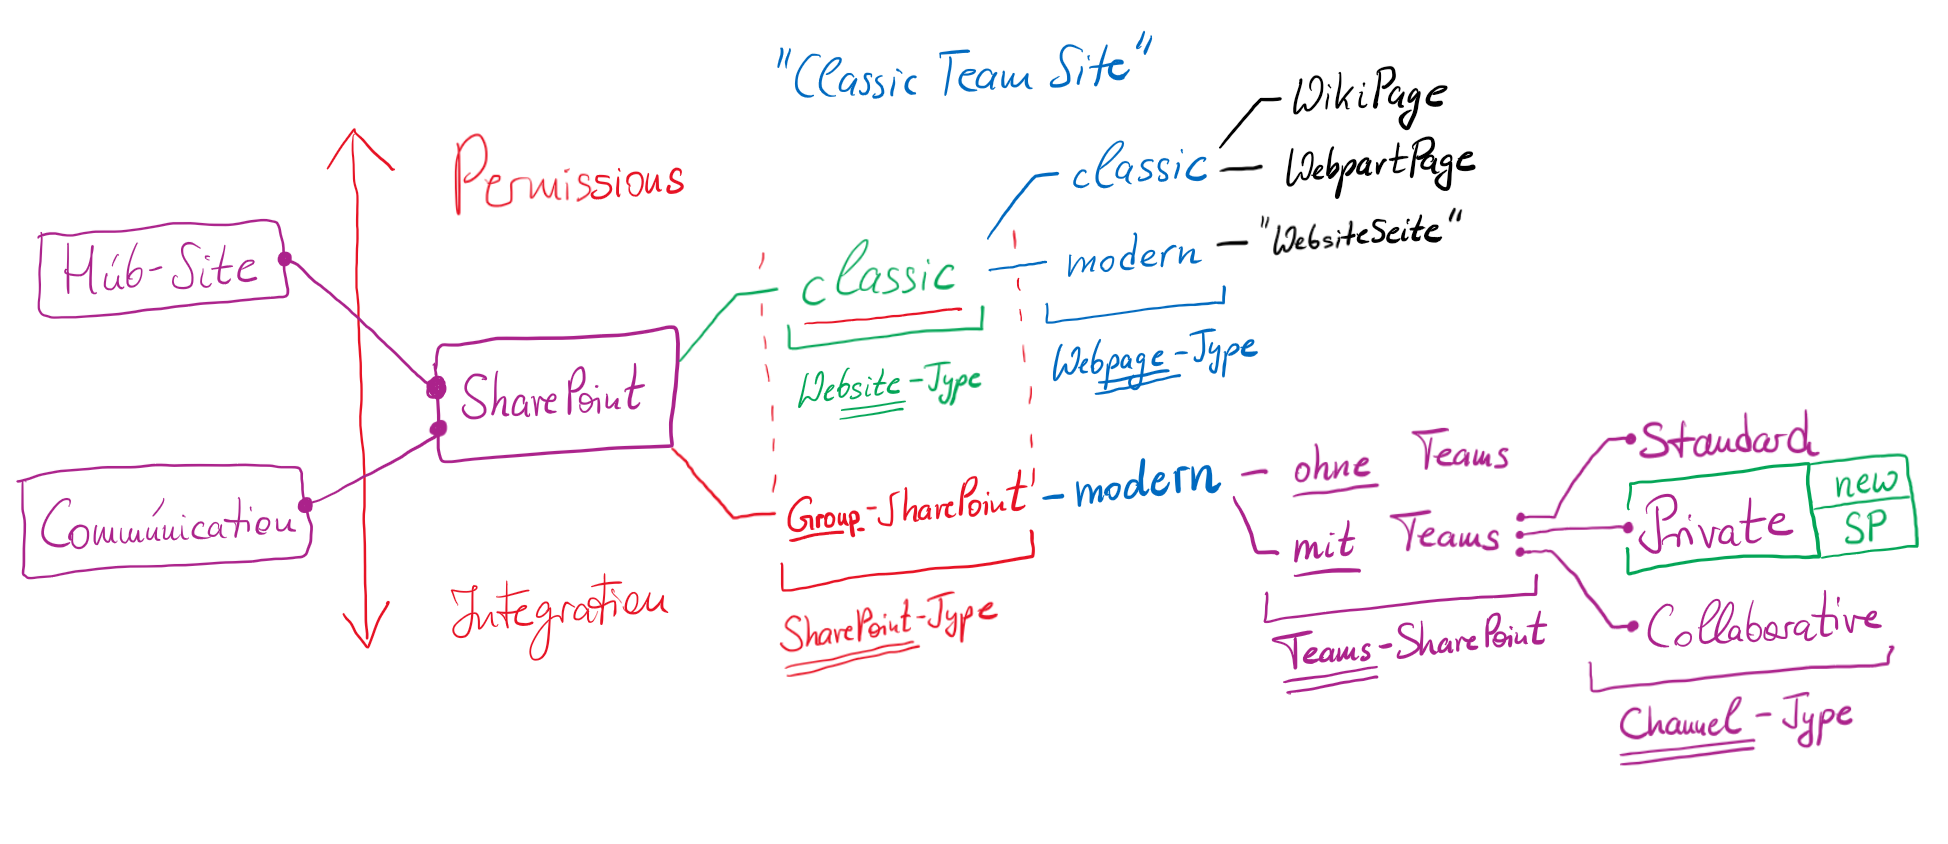 "Classic Team Site"
Permissions
Hub-Site
SharePoint
Communication
Integration
classic
Website-Type
classic
WikiPage
WebpartPage
modern
"WebsiteSeite"
Webpage-Type
Group-SharePoint
SharePoint-Type
modern
ohne Teams
mit Teams
Teams-SharePoint
Standard
Private
new
SP
Collaborative
Channel-Type